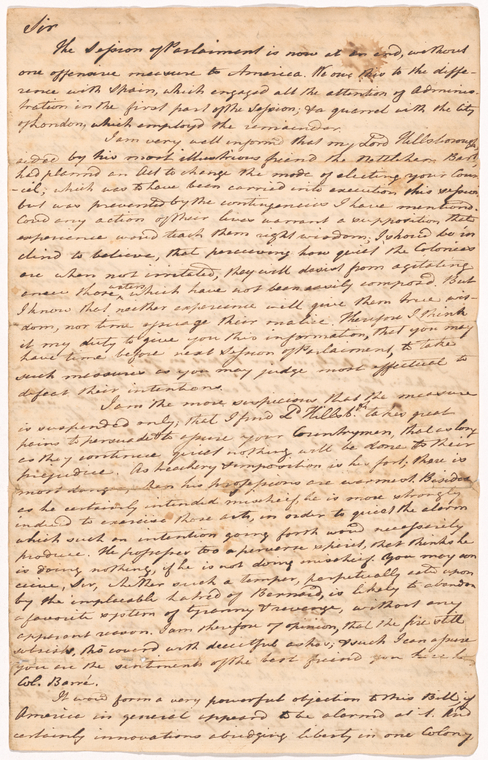 Sir
The Session of Parlaiment is now at an end, without
one offensive measure to America. We owe this to the diffe-
rence with Spain, which engaged all the attention of Adminis-
tration in the first part of the Session; & a quarrel with the City
of London, which employd the remainder.
I am very well informd that my Lord Hillsborough,
aided by his most illustrious friend the Nettleham Bart.
had planned an Act to change the mode of electing your Coun-
cil; which was to have been carried into execution this session
but was prevented by the contingencies I have mentiond.
Coud any action of their lives warrant a supposition that
experience woud teach them right wisdom; I shoud be in-
clind to believe, that perceiving how quiet the Colonies
are when not irritated, they will desist from agitating
anew those waters which have not been easily composd. But
I know that neither experience will give them true wis-
dom, nor time assuage their malice. Therefore I think
it my duty to give you this information, that you may
have time before next Session of Parlaiment, to take
such measures as you may judge most effectual to
defeat their intentions.
I am the more suspicious that the measure
is suspended only; that I find Ld Hillsbh. takes great
pains to persuade & assure your Countrymen, that as long
as they continue quiet nothing will be done to their
prejudice. As treachery & imposition is his fort, there is
most danger when his professions are warmest. Besides
as he certainly intended mischeif, he is more strongly
inducd to exercise those arts, in order to quiet the alarm
which such an intention going forth woud necessarily
produce. He possesses too a perverse spirit, that thinks he
is doing nothing, if he is not doing mischeif. You may con-
ceive, Sir, whether such a temper, perpetually acted upon
by the implacable hatred of Bernard, is likely to abandon
a favorite system of tyranny & revenge, without any
apparent reason. I am therefore of opinion, that the fire still
subsists, tho coverd with deceitful ashes; & such I can assure
you are the sentiments of the best friend you have here
Col. Barré.
It woud form a very powerful objection to this Bill, if
America in general appeard to be alarmd at it. And
certainly innovations abridging liberty in one Colony